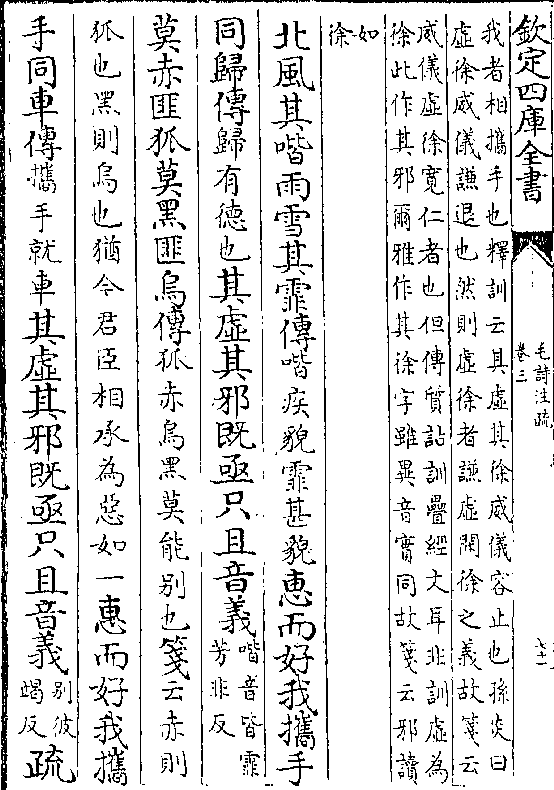 欽定四庫全書
毛詩注疏
卷三
我者相攜手也釋訓云其虛其徐威儀容止也孫炎曰
虛徐威儀謙退也然則虛徐者謙虛閑徐之義故箋云
威儀虛徐寬仁者也但傳質詁訓疊經文耳非訓虛為
徐此作其邪爾雅作其徐字雖異音實同故箋云邪讀
如
徐
北風其喈雨雪其霏傳喈疾貌霏甚貌惠而好我攜手
同歸傳歸有德也其虛其邪既亟只且音義喈音皆霏
芳非反
莫赤匪狐莫黑匪烏傳狐赤烏黑莫能别也箋云赤則
狐也黑則烏也猶今君臣相承為惡如一惠而好我攜
手同車傳攜手就車其虛其邪既亟只且音義别彼
竭反疏